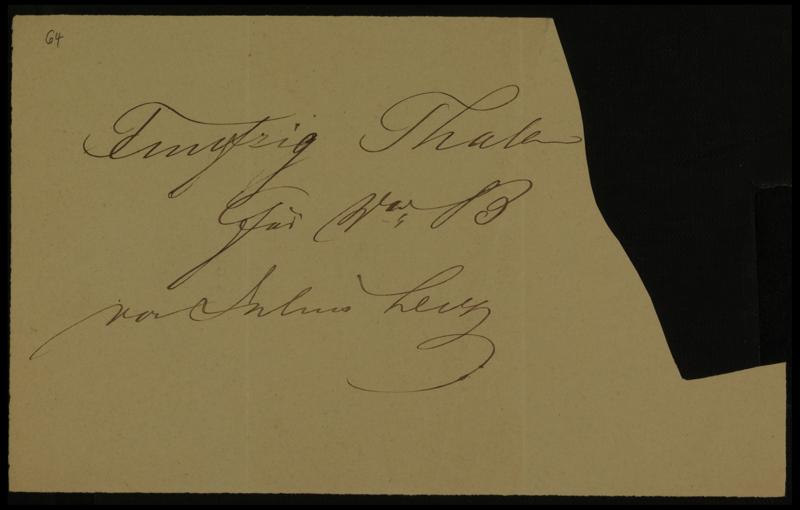 64
Funfzig Thaler
für B
von Julius Levy